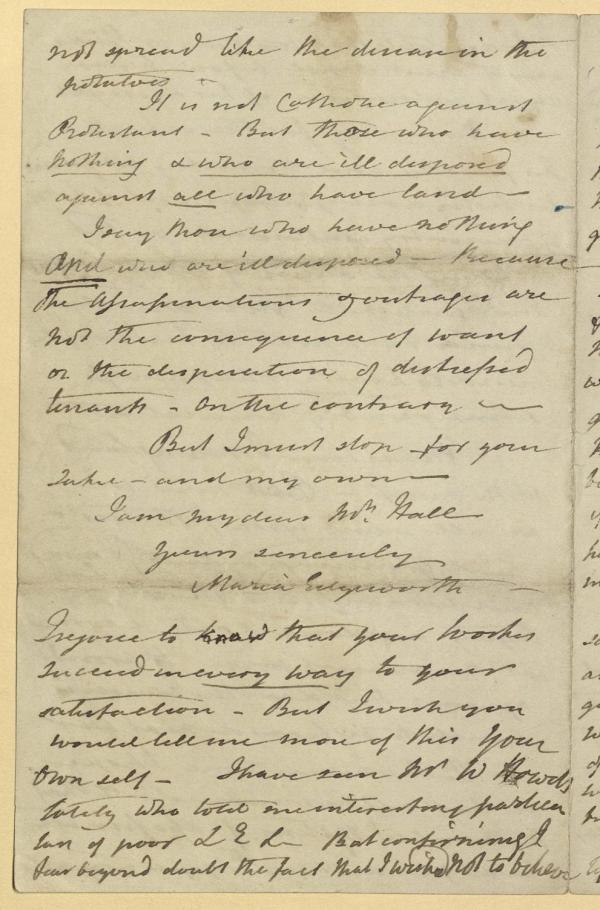 not spread like the disease in the
potatoes -
It is not Catholic against
Protestant - But those who have
nothing & who are ill disposed
against all who have land -
I say those who have nothing
And who are ill disposed - Because
the Assassinations & outrages are
not the consequence of want
or the desperation of distressed
tenants - on the contrary -
But I must stop for your
sake - and my own -
I am my dear Mrs. Hall
Yours sincerely
Maria Edgeworth -
I rejoice to that your works
succeed in every way to your
satisfaction - But I wish you
would tell me more of this your
own self - I have seen Mr W
lately who told me interesting particu
lars of poor L E L - But confirming I
fear beyond doubt the fact that I wished not to believe